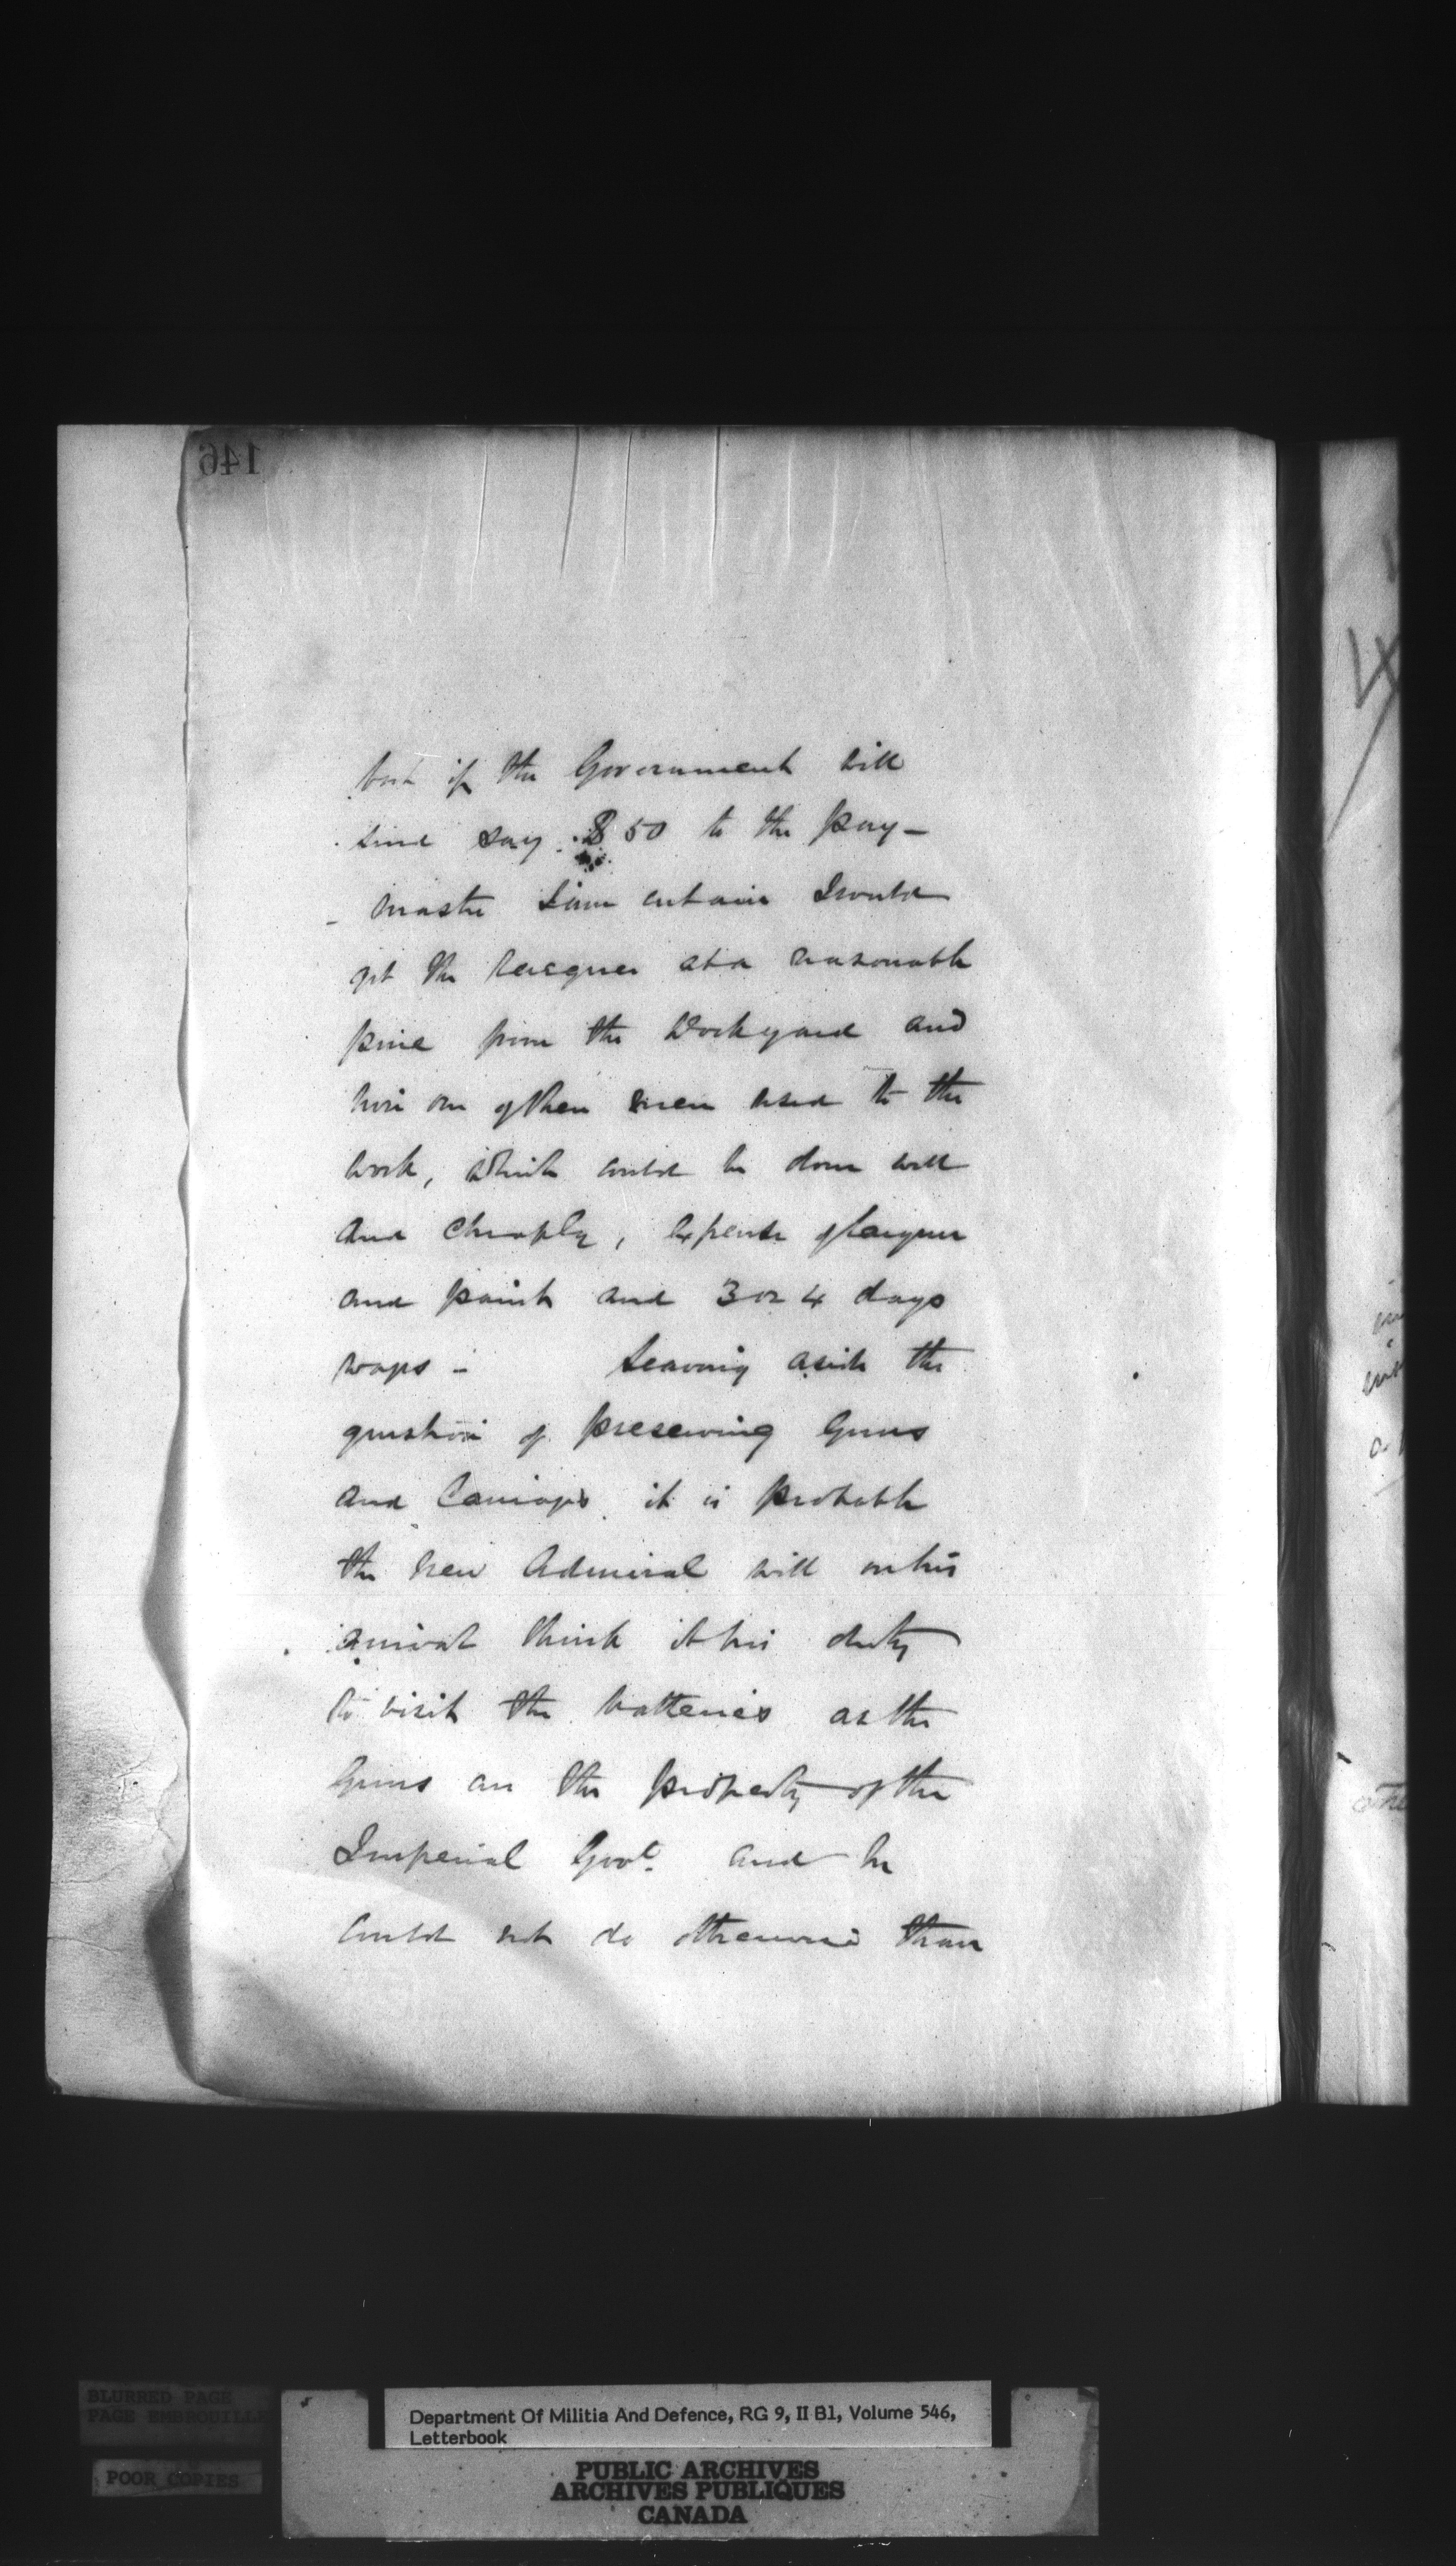 146
but if the Government will
send say $50 to the pay-
master I am certain I would
get the lacquer at a reasonable
price from the Dockyard and
hire one of their men used to the
work, which could be done well
and cheaply, expense of lacquer
and paint and 3 or 4 days
wages - Leaving aside the
question of preserving Guns
and Carriages it is probable
the new Admiral will on his
arrival think it his duty
to visit the batteries as the
Guns are the property of the
Imperial Govt. and he
could not do otherwise than
BLURRED PAGE
PAGE EMBROUILLE
POOR COPIES
Department Of Militia And Defence, RG 9, II B1, Volume 546,
Letterbook
PUBLIC ARCHIVES
ARCHIVES PUBLIQUES
CANADA